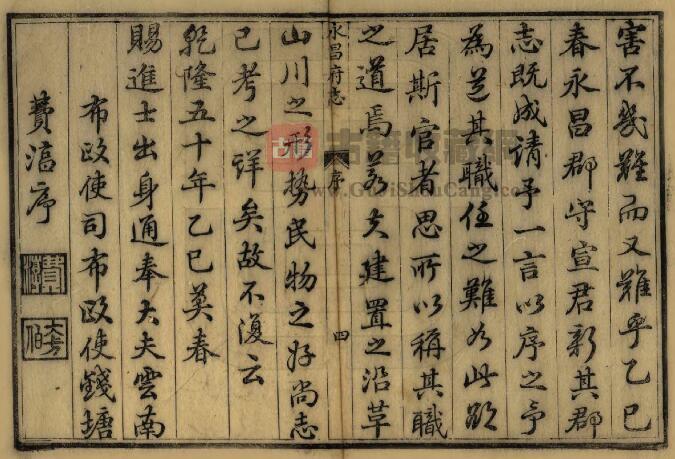 害不幾難而又難乎乙巳
春永昌郡守宣君新其郡
志既成請予一言以序之予
為道其職任之難如此欲
居斯官者思所以稱其職
之道焉若夫建置之沿革
永昌府志 序 四
山川之形勢民物之好尚志
已考之詳矣故不復云
乾隆五十年乙巳莫春
賜進士出身通奉大夫雲南
布政使司布政使錢塘
費淳序
古籍收藏網
www.GuJiShouCang.com